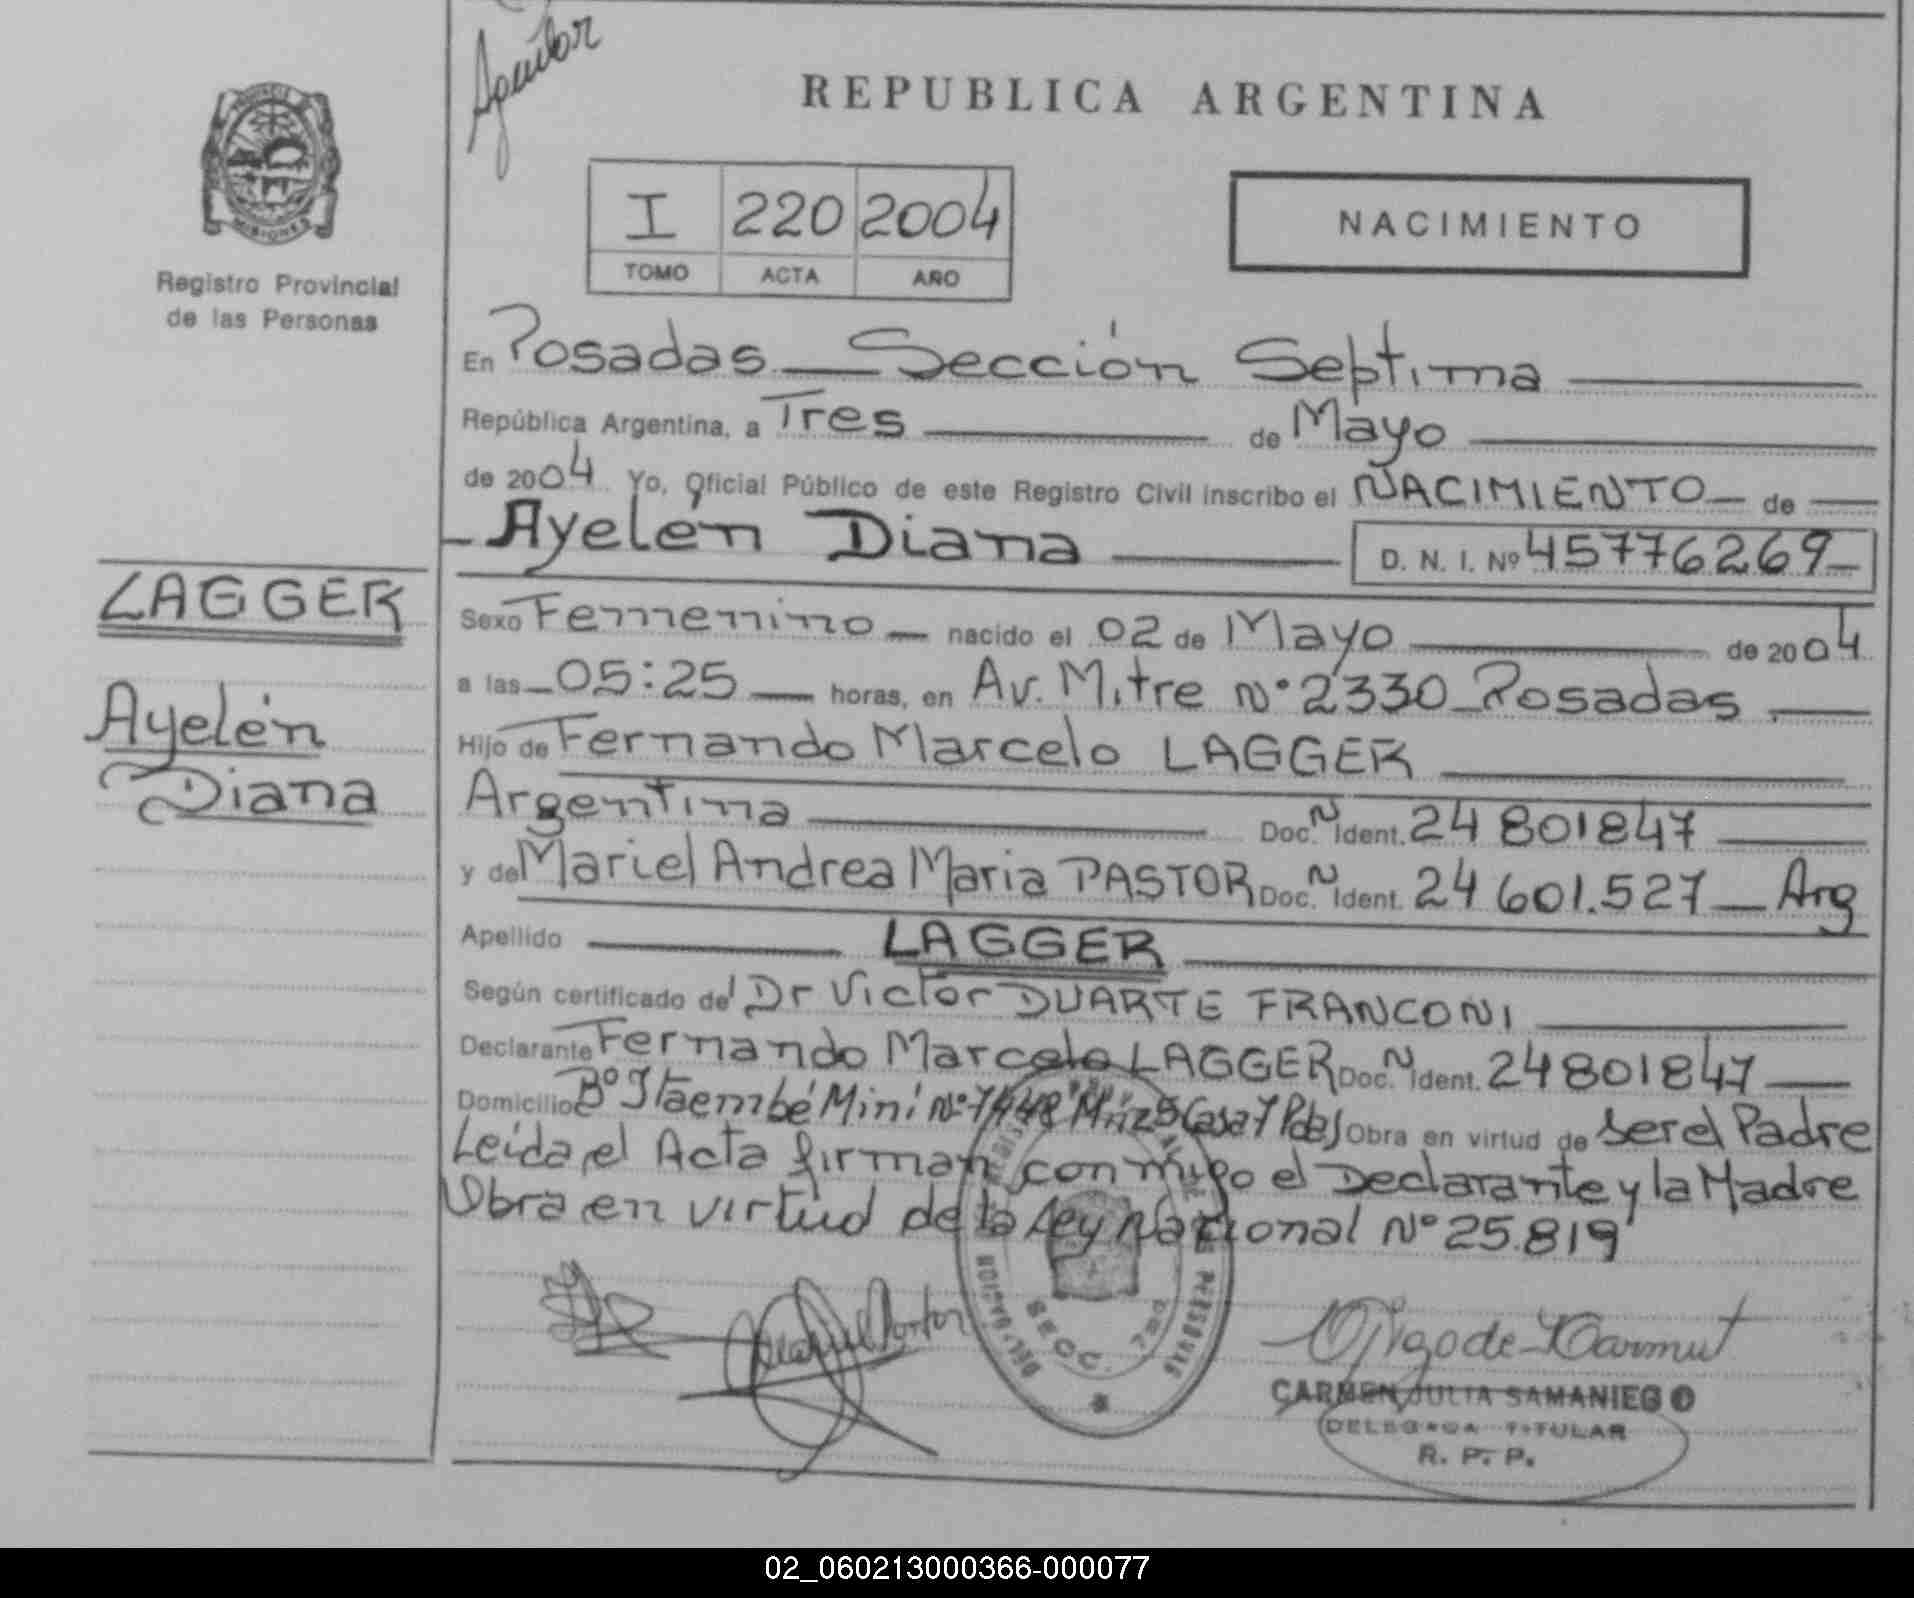 Aguilar
REPUBLICA ARGENTINA
PROVINCIA DE MISIONES
Registro Provincial
de las Personas
I 220 2004
TOMO ACTA AÑO
NACIMIENTO
En Posadas — Sección Septima
República Argentina, a Tres de Mayo
de 2004 Yo, Oficial Público de este Registro Civil inscribo el NACIMIENTO de
Ayelén Diana D. N. I. Nº 45776269
LAGGER
Ayelén
Diana
Sexo Femenino nacido el 02 de Mayo de 2004
a las 05:25 horas, en Av. Mitre Nº 2330 Posadas
Hijo de Fernando Marcelo LAGGER
Argentina Doc. N Ident. 24 801847
y de Mariel Andrea Maria PASTOR Doc. N Ident. 24 601.527 Arg
Apellido LAGGER
Según certificado del Dr Victor DUARTE FRANCONI
Declarante Fernando Marcelo LAGGER Doc. N Ident. 24801847
Domicilio Bº Itaembé Miní Nº 7448 Mnz 5 Casa 7 Pdas Obra en virtud de ser el Padre
Leida el Acta firman conmigo el Declarante y la Madre
Obra en virtud de la Ley Nacional Nº 25.819
SECC. 7ma
CARMEN JULIA SAMANIEGO
DELEGADA TITULAR
R. P. P.
02_060213000366-000077